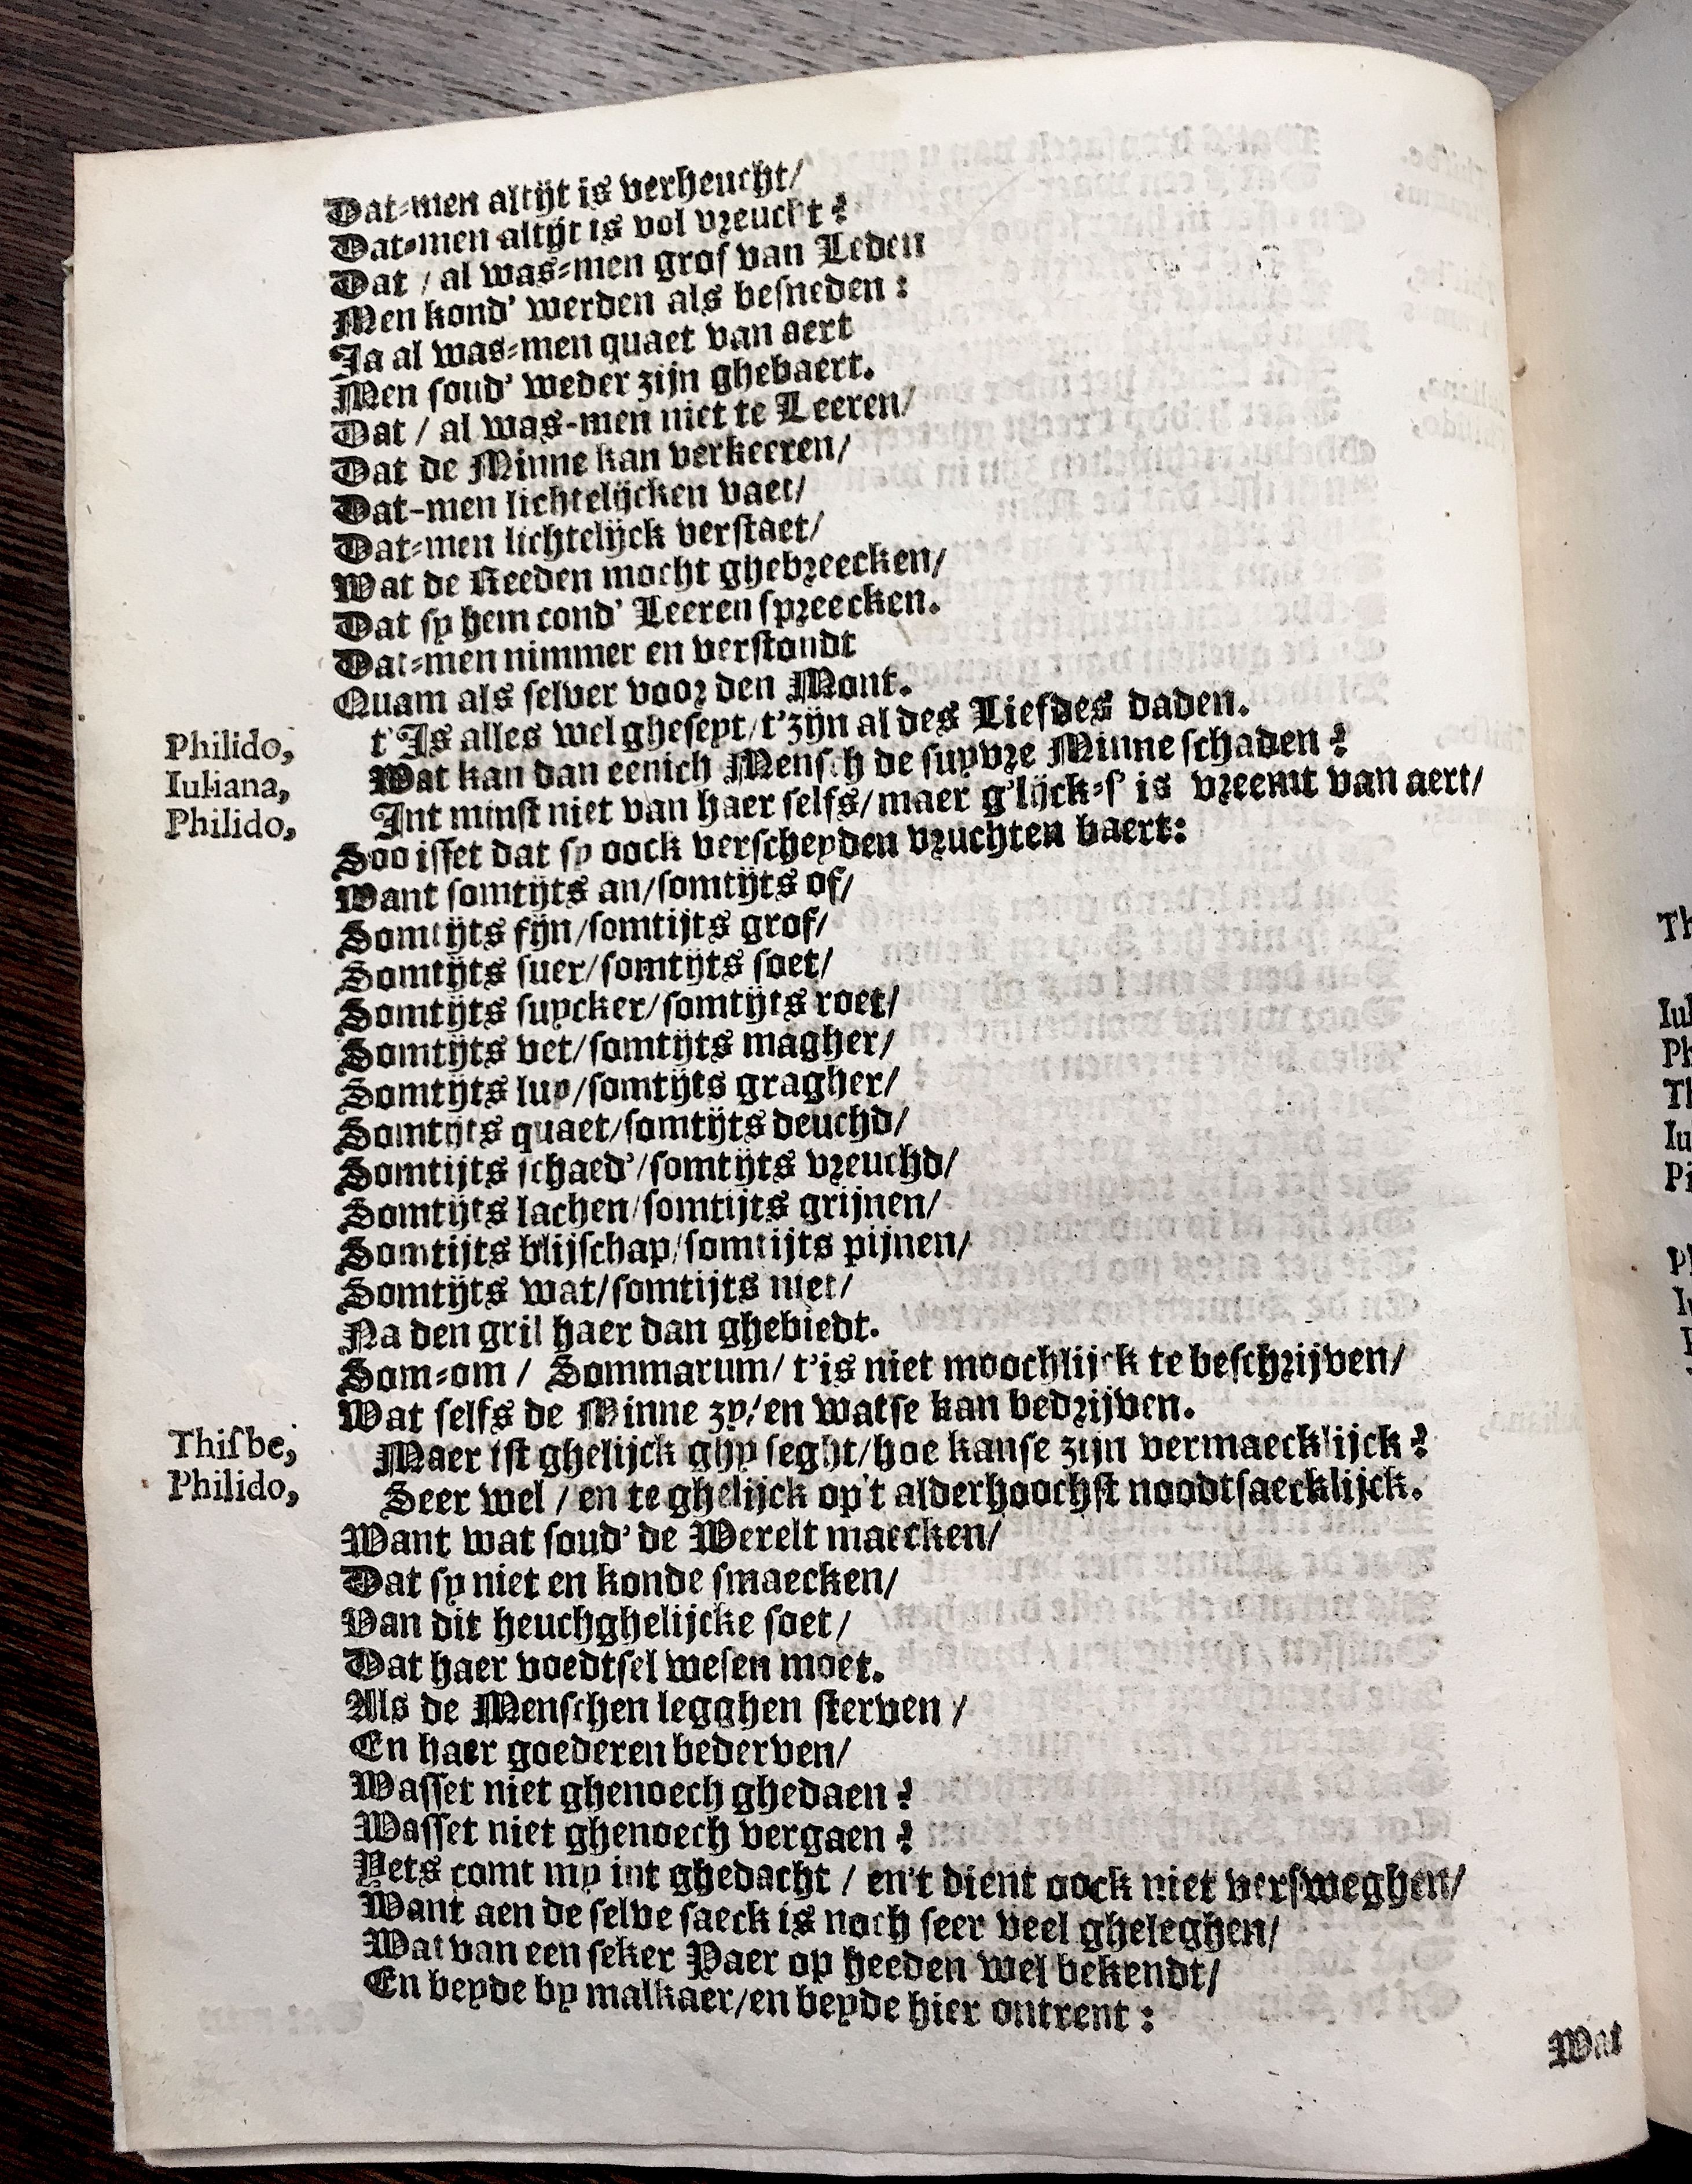 Dat-men altijt is verheucht/
Dat-men altijt is vol vreucht?
Dat / al was-men grof van Leden
Men kond' werden als besneden:
Ja al was-men quaet van aert
Men soud' weder zijn ghebaert.
Dat / al was-men niet te Leeren/
Dat de Minne kan verkeeren/
Dat-men lichtelijcken vaet/
Dat-men lichtelijck verstaet/
Wat de Reeden mocht ghebreecken/
Dat sy hem cond' Leeren spreecken.
Dat-men nimmer en verstondt
Quam als selver voor den Mont.
Philido, t'Is alles wel gheseyt/t'zijn al des Liefdes daden.
Iuliana, Wat kan dan eenich Mensch de suyvre Minne schaden?
Philido, Int minst niet van haer selfs/maer g'lijck-s' is vreemt van aert/
Soo isset dat sy oock verscheyden vruchten baert:
Want somtijts an/somtijts of/
Somtijts fijn/somtijts grof/
Somtijts suer/somtijts soet/
Somtijts suycker/somtijts roet/
Somtijts vet/somtijts magher/
Somtijts luy/somtijts gragher/
Somtijts quaet/somtijts deuchd/
Somtijts schaed'/somtijts vreuchd/
Somtijts lachen/somtijts grijnen/
Somtijts blijschap/somtijts pijnen/
Somtijts wat/somtijts niet/
Na den gril haer dan ghebiedt.
Som-om / Sommarum/ t'is niet moochlijck te beschrijven/
Wat selfs de Minne zy/en watse kan bedrijven.
Thisbe, Maer ist ghelijck ghy seght/hoe kanse zijn vermaecklijck?
Philido, Seer wel / en te ghelijck op't alderhoochst noodtsaecklijck.
Want wat soud' de Werelt maecken/
Dat sy niet en konde smaecken/
Van dit heuchghelijcke soet/
Dat haer voedtsel wesen moet.
Als de Menschen legghen sterven /
En haer goederen bederven/
Wasset niet ghenoech ghedaen?
Wasset niet ghenoech vergaen?
Yets comt my int ghedacht / en't dient oock niet versweghen/
Want aen de selve saeck is noch seer veel gheleghen/
Wat van een seker Paer op heeden wel bekendt/
En beyde by malkaer/en beyde hier ontrent:
Wat